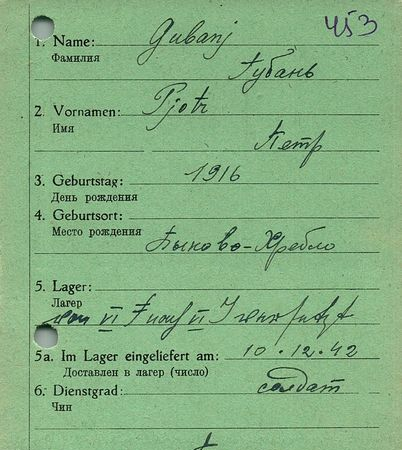 453
1. Name: Gubanj
Фамилия
Губань
2. Vornamen: Pjotr
Имя
Петр
3. Geburtstag: 1916
День рождения
4. Geburtsort:
Место рождения
Быково-Хребло
5. Lager:
Лагер
von VI F nach VI
5a. Im Lager eingeliefert am: 10.12.42
Доставлен в лагер (число)
6. Dienstgrad: солдат
Чин